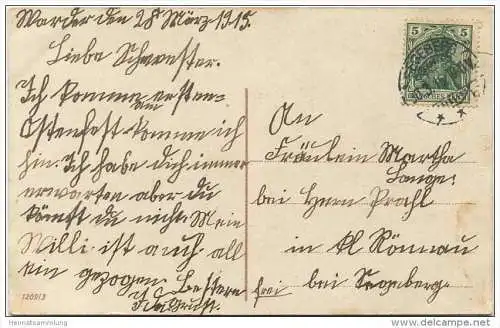 Warder den 28 März 1915.
Liebe Schwester.
Ich komme am ersten
Ostenfest komme ich
hin. Ich habe dich immer
erwarten aber du
kömfst du nicht. Mein
Willi ist auch all
ein gezogen. Bestern
Gruss.
An
Fräulein Martha
Lange.
bei Herrn Prahl
in Kl Rönnau
frei bei Segeberg.
5 5
DEUTSCHES REICH
SEGEBERG
120913
Heimatsammlung